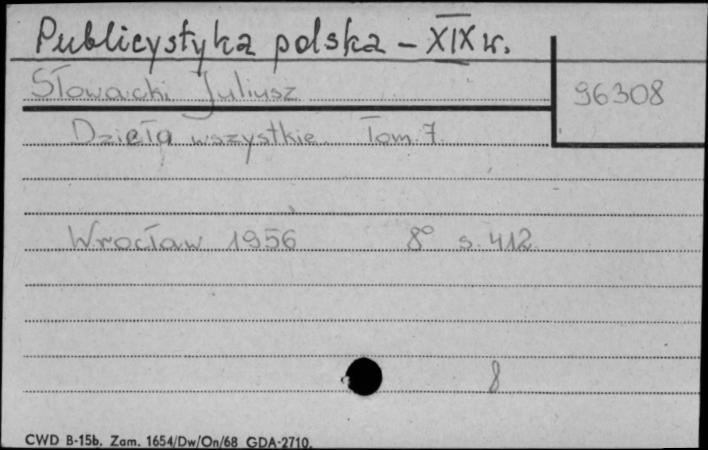 Publicystyka polska - XIX w.
Słowacki Juliusz
96308
Dzieła wszystkie. Tom. 7.
Wrocław 1956 8° s. 412
8
CWD B-15b. Zam. 1654/Dw/On/68 GDA-2710.